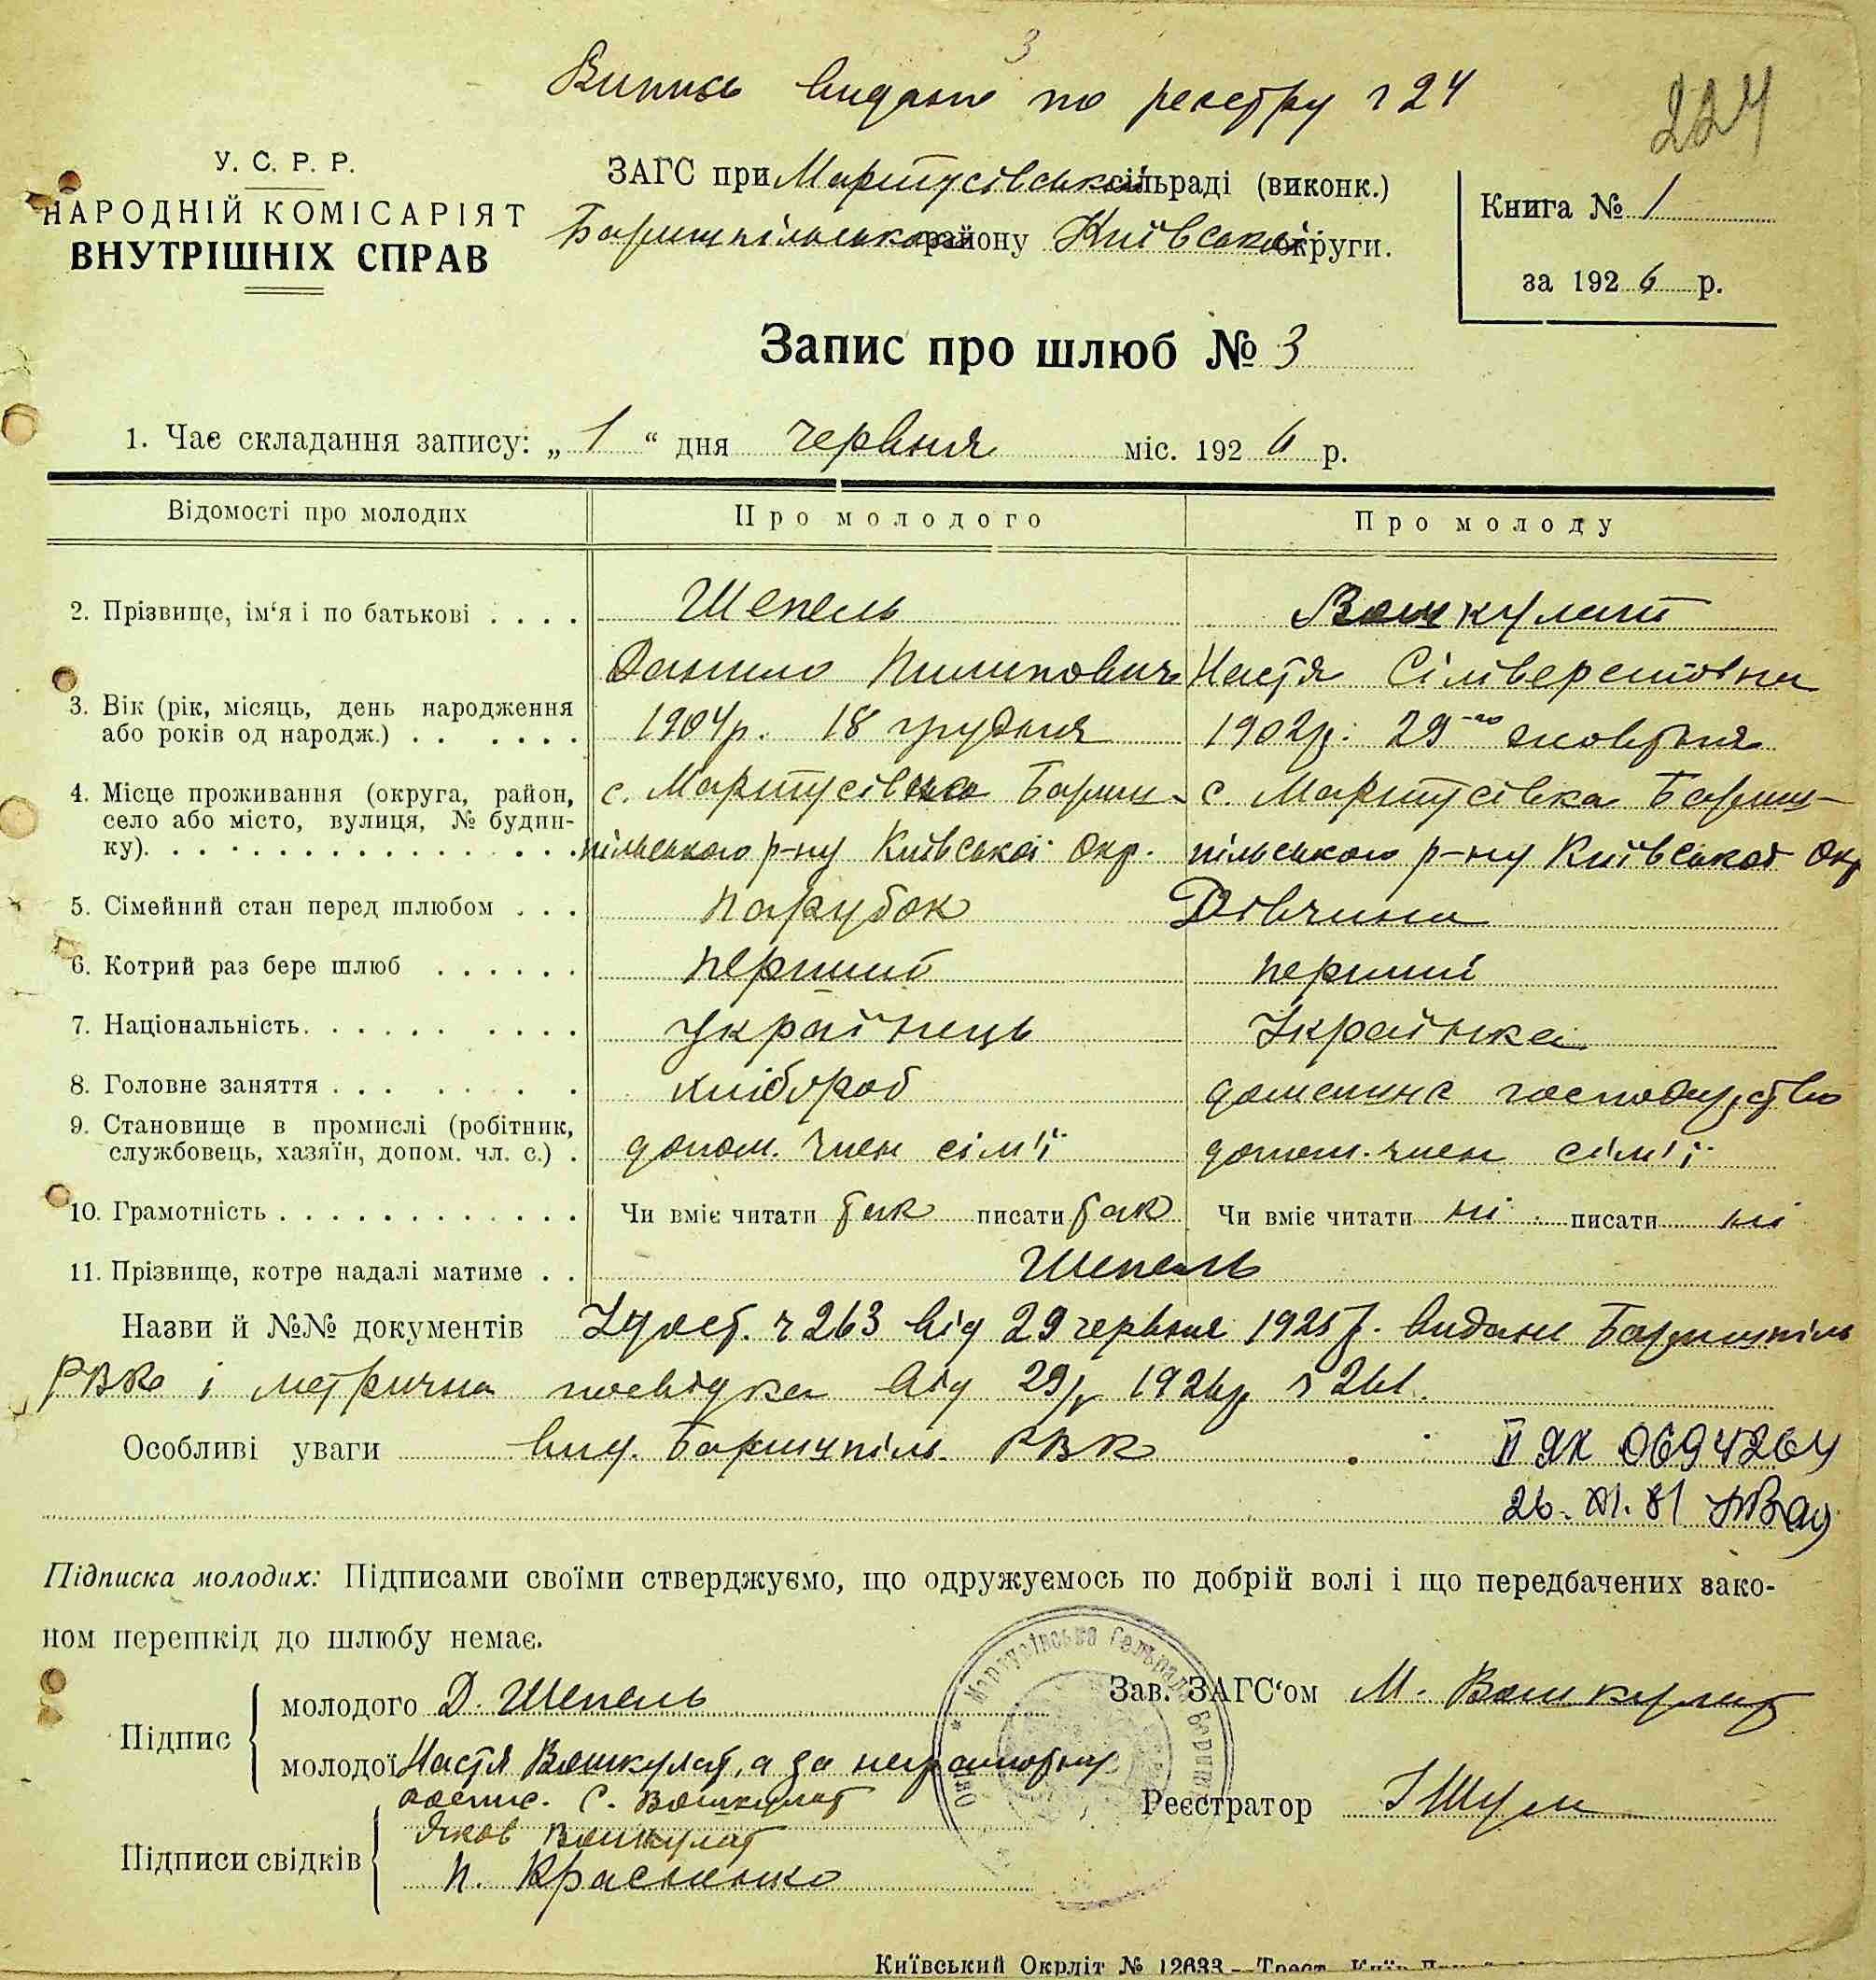 3
Випись видано по реєстру ч 24
224
У. С. Р. Р.
НАРОДНІЙ КОМІСАРІЯТ
ВНУТРІШНІХ СПРАВ
ЗАГС при Мартусівській сільраді (виконк.)
Баришпільського району Київської округи.
Книга № 1
за 1926 р.
Запис про шлюб № 3
1. Чає складання запису: „ 1 “ дня червня міс. 1926 р.
Відомості про молодих Про молодого Про молоду
2. Прізвище, ім‘я і по батькові . . . . Шепель Вошкулат
Данило Пилипович Настя Сілверстовна
3. Вік (рік, місяць, день народження
або років од народж.) . . . . . . 1904р. 18 грудня 1902р. 29-го жовтня
4. Місце проживання (округа, район, с. Мартусівка Бариш- с. Мартусівка Бариш-
село або місто, вулиця, № будин-
ку). . . . . . . . . . . . . . . . пільського р-ну Київської Окр. пільського р-ну Київської Окр
5. Сімейний стан перед шлюбом . . . парубок Дівчина
6. Котрий раз бере шлюб . . . . . . перший перший
7. Національність. . . . . . . . . . українець Українка
8. Головне заняття . . . . . . . хлібороб домашнє господарство
9. Становище в промислі (робітник,
службовець, хазяїн, допом. чл. с.) . допом. член сім'ї допом. член сім'ї
10. Грамотність . . . . . . . . . . . . Чи вміє читати так писати так Чи вміє читати ні писати ні
11. Прізвище, котре надалі матиме . . Шепель
Назви й №№ документів Удост. ч 263 від 29 червня 1925 р. видане Баришпіль
РВК і метрична посвідка від 29/V 1926р. ч 261.
Особливі уваги вид. Баришпіль. РВК
II ЯК 0694264
26. XI. 81
Підписка молодих: Підписами своїми стверджуємо, що одружуємось по добрій волі і що передбачених зако-
ном перешкід до шлюбу немає.
Підпис
молодого Д. Шепель
молодої Настя Вошкулат, а за неграмотну
роспис. С. Вошкулат
Підписи свідків
Яков Вошкулат
П. Красненко
Зав. ЗАГС‘ом М. Вошкулат
Реєстратор
Мартусівська Сельрада Бориш
Київський Окрліт № 12633